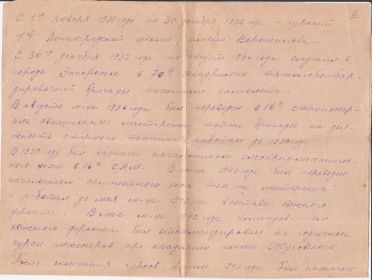 С 1го января 1931 года по 30 декабря 1932 года - курсант
1ой Ленинградской школы имени Ворошилова.
С 30го декабря 1932 по август 1936 года служил в
городе Запорожье в 70й эскадрильи тяжелобомбар-
дировочной бригады техником самолета.
В августе м-це 1936 года был переведен в 16е стационар-
ные авиационные мастерские той же бригады на дол-
жность старшего техника, работал до 1939 года.
В 1939 году был назначен начальником слесарно-механичес-
кого цеха в 16е САМ. В 1940 году был переведен
начальником самолетного цеха тех же мастерских
работал до мая м-ца 1942 года в составе южного
фронта. В мае м-це 1942 года командованием
южного фронта был откомандирован на годичные
курсы инженеров при академии имени Жуковского
После окончания курсов в 1943 году был назначен